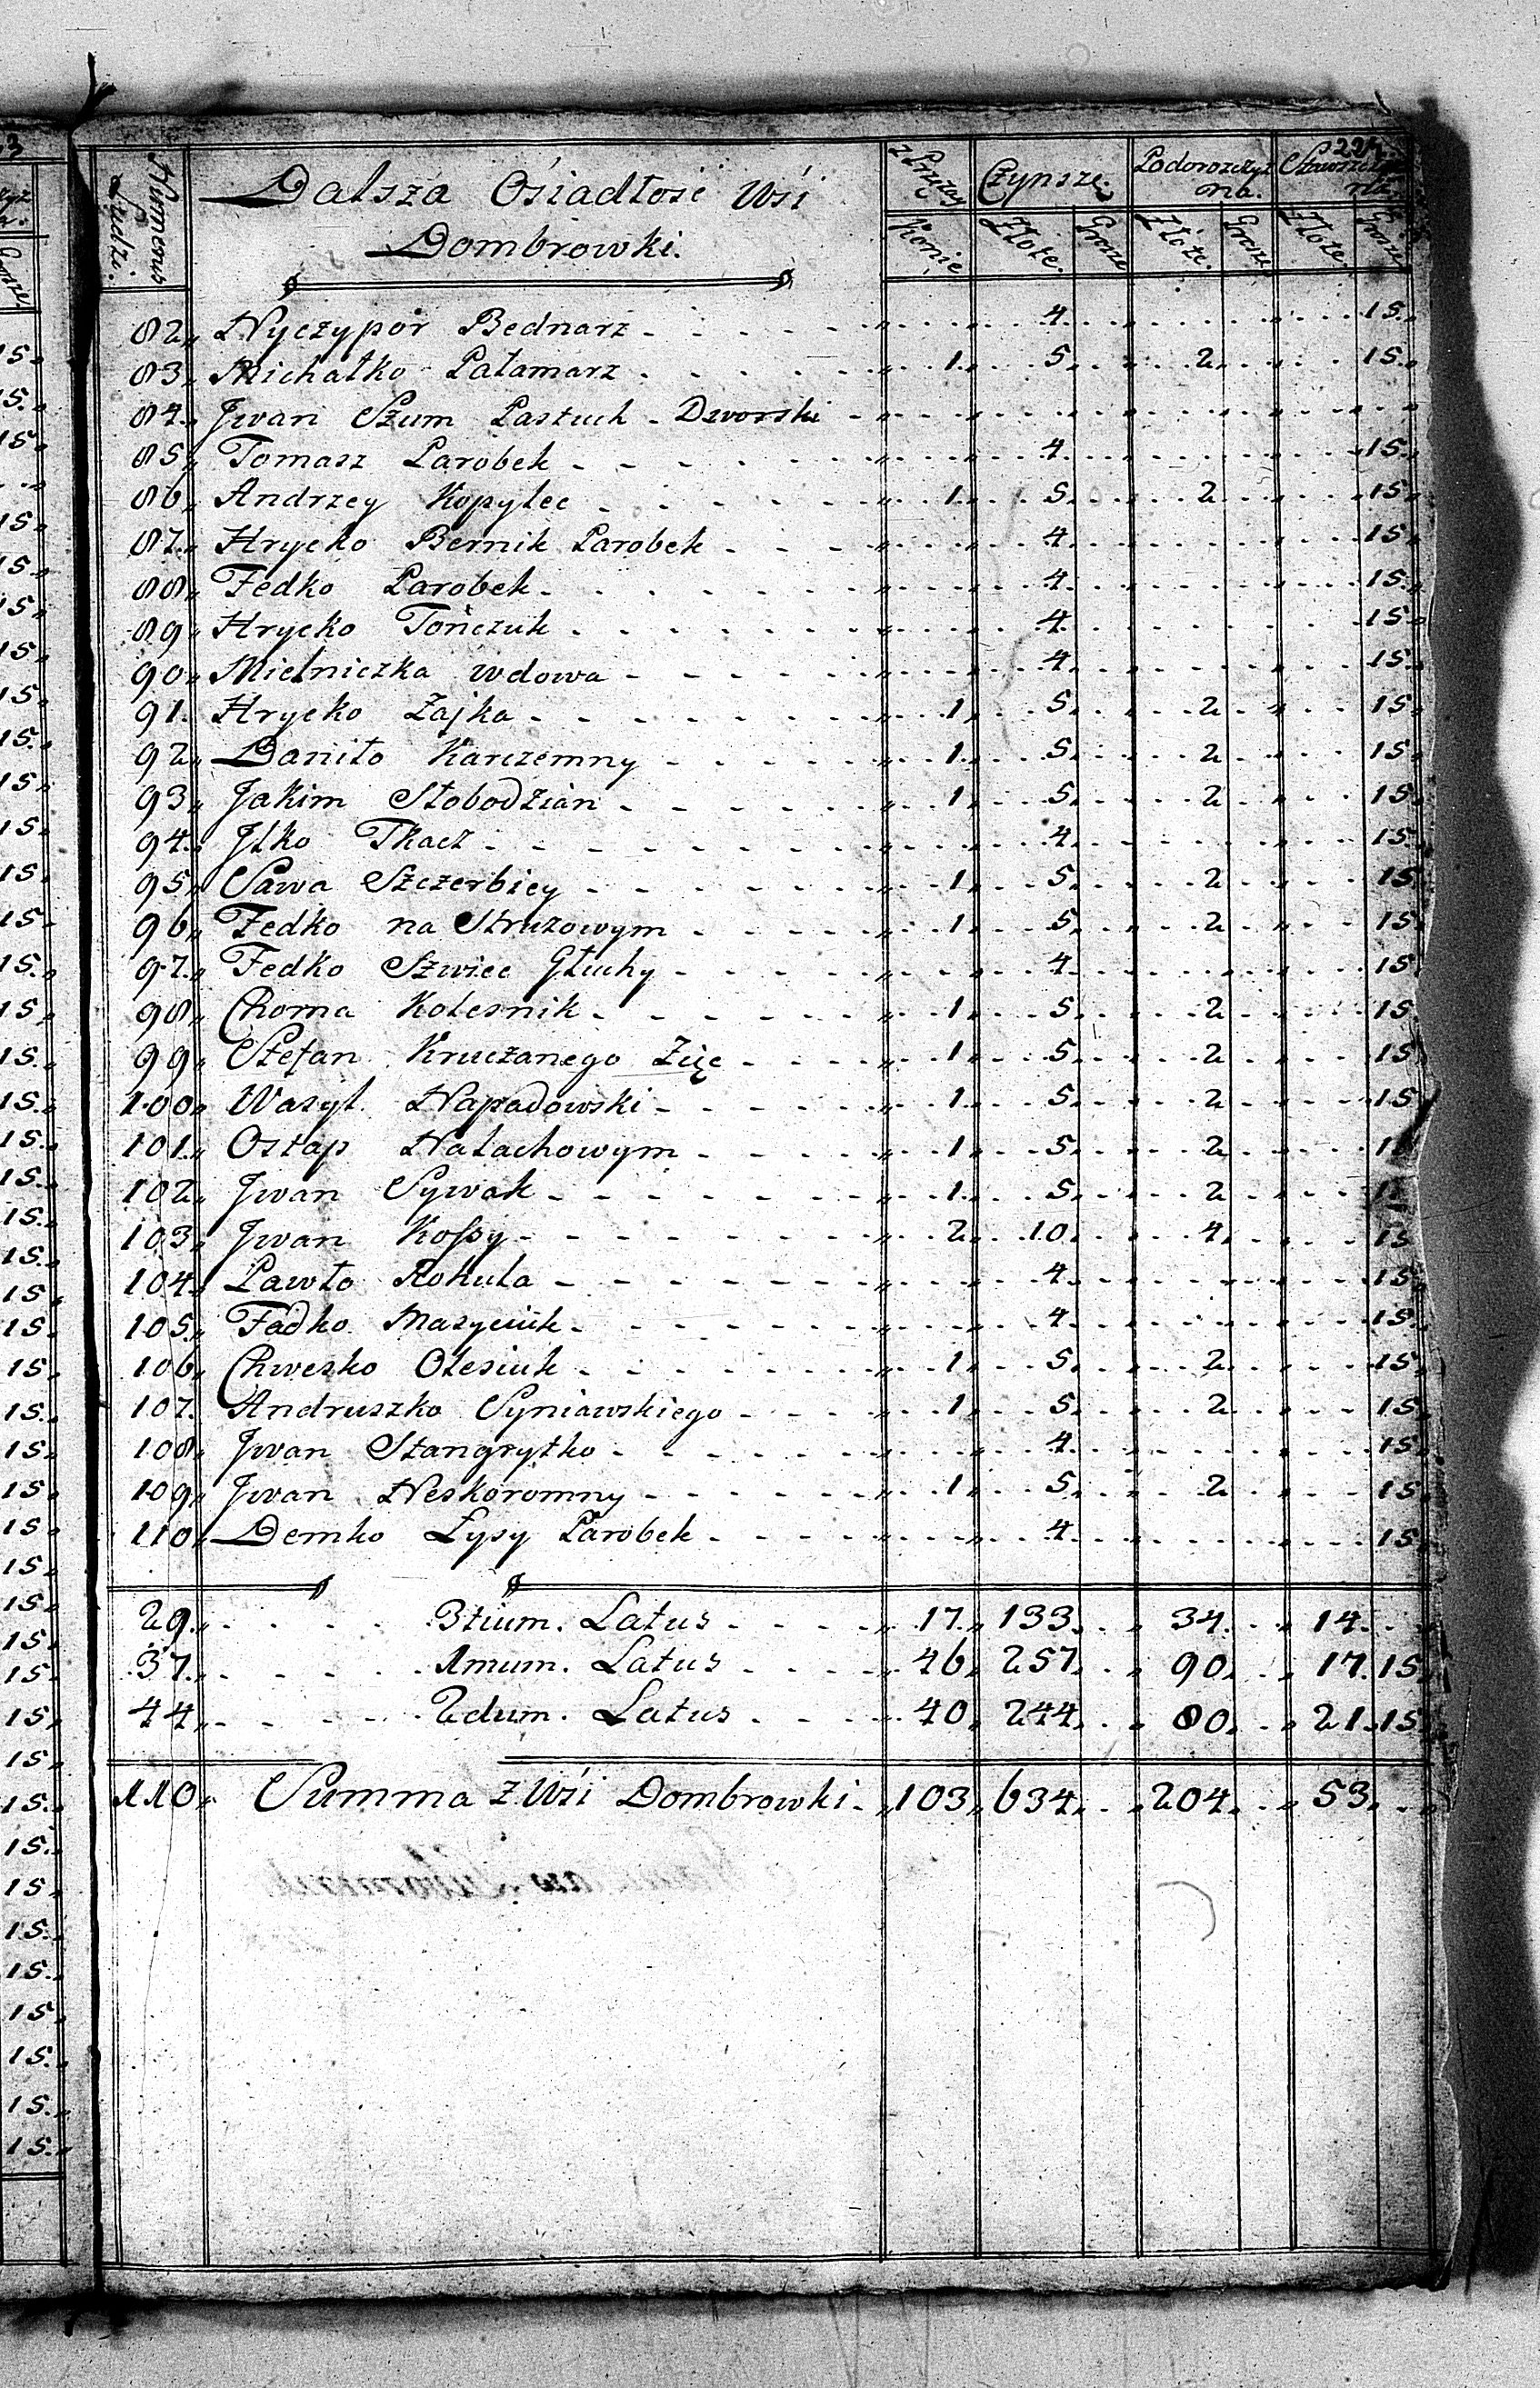 224
Numerus Ludzi.
Dalsza Ósiadłość Wsi
Dombrowki.
z Przęży
Konie
Czynsze.
Złote.
Grosze
Podorozczyzna.
Złote.
Grosze
Złote.
Grosze
82 Nyczypór Bednarz - - - 4 - - - 15
83 Michałko Pałamarz - - 1 - 5 - 2 - - 15
84 Jwan Szum Pastuch - Dworski - - -
85 Tomasz Parobek - - - 4 - - - 15
86 Andrzey Kopylec - - 1 - 5 - 2 - - 15
87 Hrycko Bernik Parobek - - - 4 - - - 15
88 Fedko Parobek - - - 4 - - - 15
89 Hrycko Tończuk - - - 4 - - - 15
90 Mielniczka wdowa - - - 4 - - - 15
91 Hrycko Zajka - - 1 - 5 - 2 - - 15
92 Daniło Karczemny - - 1 - 5 - 2 - - 15
93 Jakim Słobodzian - - 1 - 5 - 2 - - 15
94 Jłko Tkacz - - - 4 - - - 15
95 Sawa Szczerbicy - - 1 - 5 - 2 - - 15
96 Fedko na Struzowym - - 1 - 5 - 2 - - 15
97 Fedko Szwiec Głuchy - - - 4 - - - 15
98 Choma Kolesnik - - 1 - 5 - 2 - - 15
99 Stefan Kruczanego Zięc - - 1 - 5 - 2 - - 15
100 Wasyl Napadowski - - 1 - 5 - 2 - - 15
101 Ostap Nalachowym - - 1 - 5 - 2 - -
102 Jwan Sywak - - 1 - 5 - 2 - -
103 Jwan Kossy - - 2 - 10 - 4 - - 15
104 Pawło Rokuła - - - 4 - - - 15
105 Fadko Masyciuk - - - 4 - - - 15
106 Chwesko Olesiuk - - 1 - 5 - 2 - - 15
107 Andruszko Syniawskiego - - 1 - 5 - 2 - - 15
108 Jwan Stangrytko - - - 4 - - - 15
109 Jwan Neskoromny - - 1 - 5 - 2 - - 15
110 Demko Łysy Parobek - - - 4 - - - 15
29 - - 3tium. Latus - - 17 133 - 34 - 14 -
37 - - 1mum. Latus - - 46 257 - 90 - 17 15
44 - - 2dum. Latus - - 40 244 - 80 - 21 15
110 Summa z Wsi Dombrowki - 103 634 - 204 - 53 -